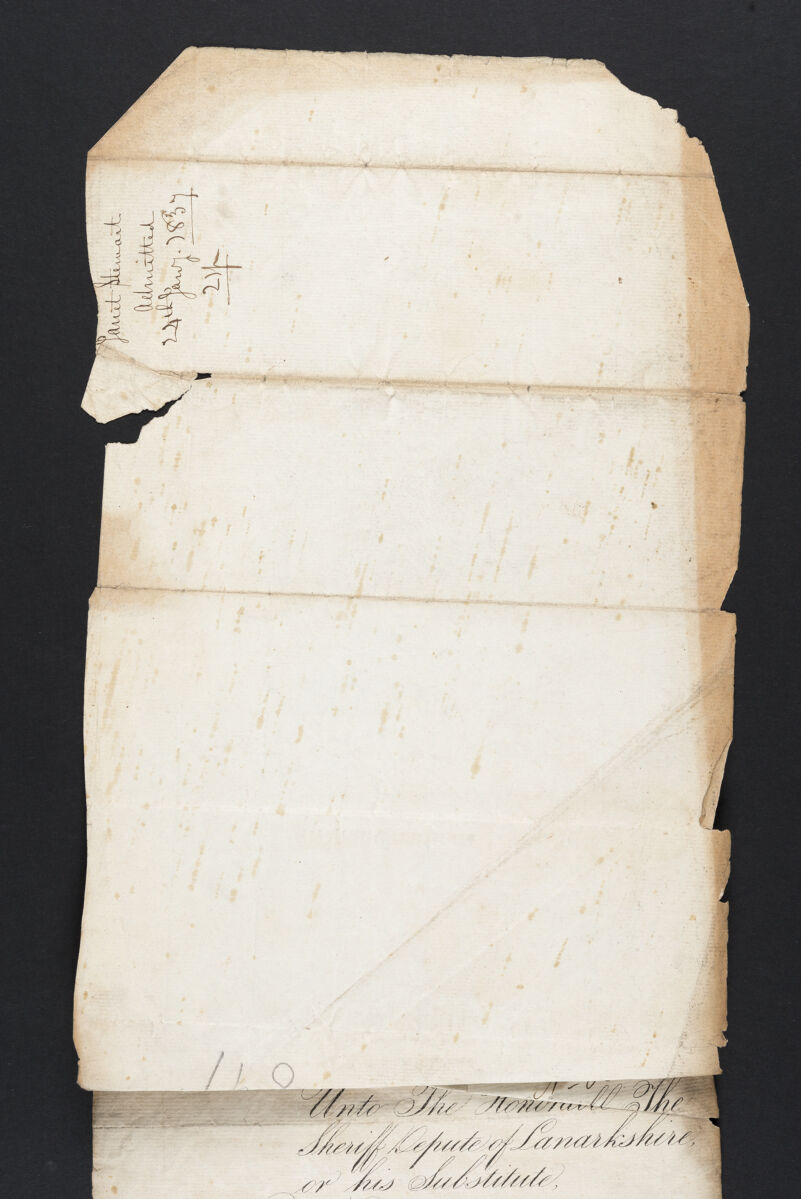 Janet Stewart
Admitted
24th Jany. 1837
21/
Unto The Honorable The
Sheriff Depute of Lanarkshire,
or his Substitute,